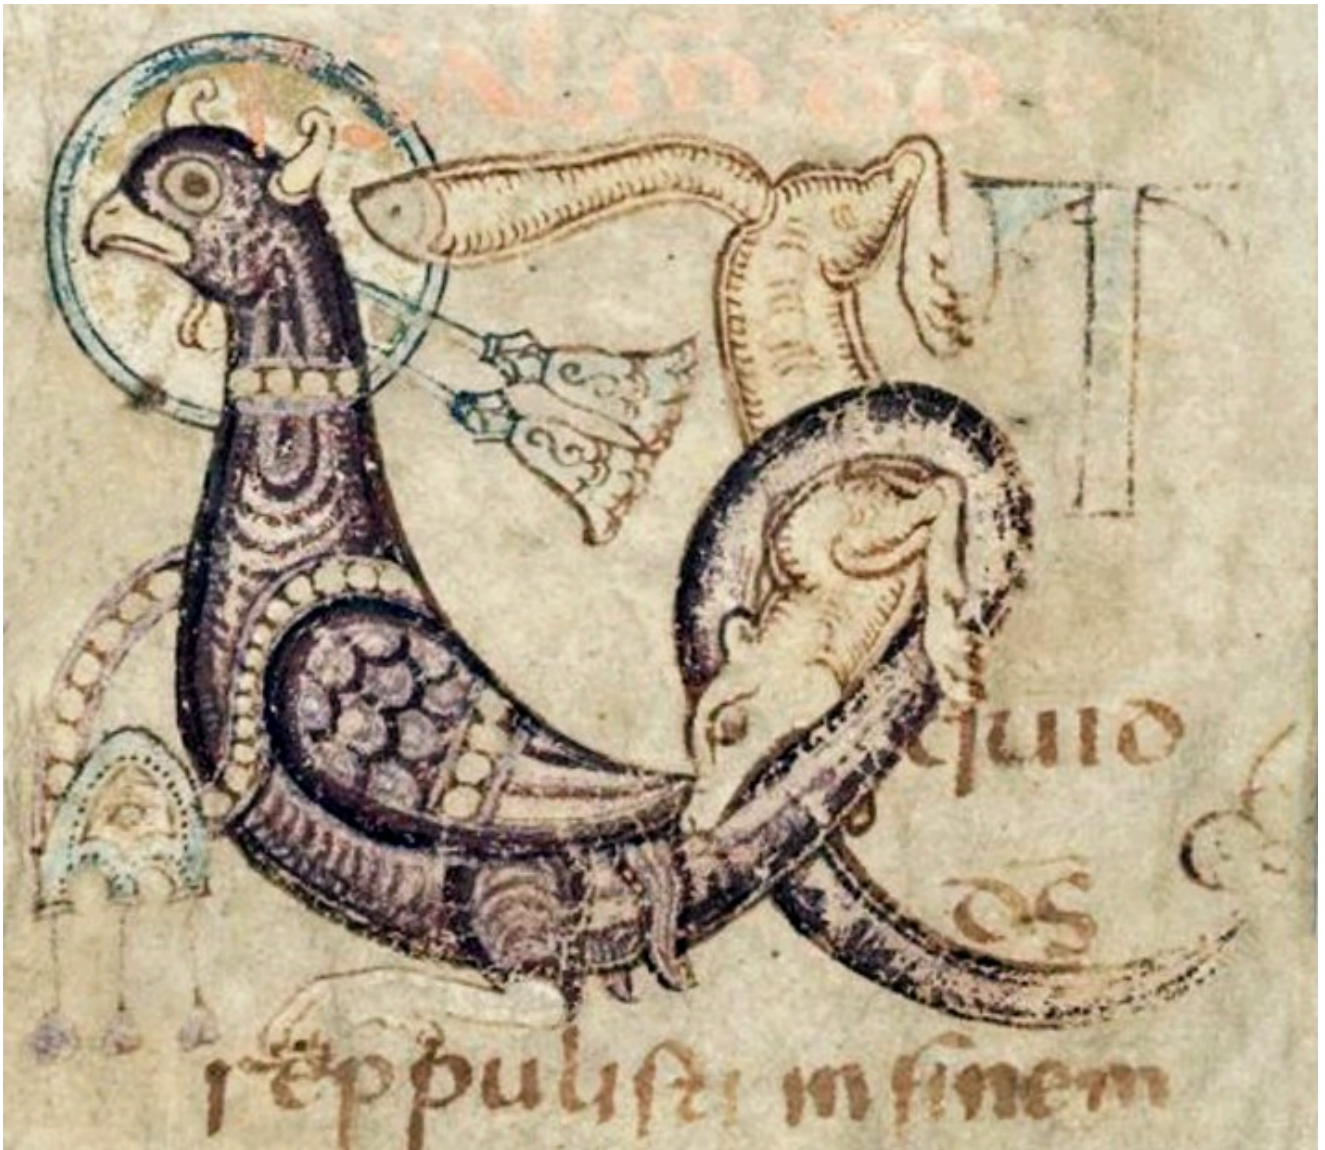 UT
quid
d̄s
reppulisti in finem